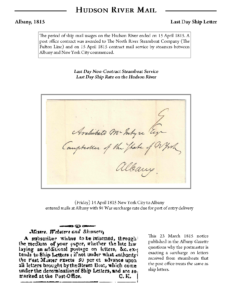 HUDSON RIVER MAIL
Albany, 1815
Last Day Ship Letter
The period of ship mail usages on the Hudson River ended on 15 April 1815. A
post office contract was awarded to The North River Steamboat Company (The
Fulton Line) and on 15 April 1815 contract mail service by steamers between
Albany and New York City commenced.
Last Day Non-Contract Steamboat Service
Last Day Ship Rate on the Hudson River
Archibald McIntyre Esqr
Comptroller of the State of
Albany
(Friday) 14 April 1815 New York City to Albany
entered mails at Albany with
War surcharge rate due for port of entry delivery
Messrs. Websters and Skinners,
A subscriber wishes to be informed, through
the medium of your paper, whether the late law
laying an additional postage on letters, &c. ex-
tends to Ship Letters; if not under what authority
the Post Master exacts 50 per ct advance upon
all letters brought by the Steam Boat, which come
under the denomination of Ship Letters, and are so
marked at the Post-Office.
This 23 March 1815 notice
published in the Albany Gazette
questions why the postmaster is
exacting a surcharge on letters
received from steamboats that
the post office treats the same as
ship letters.